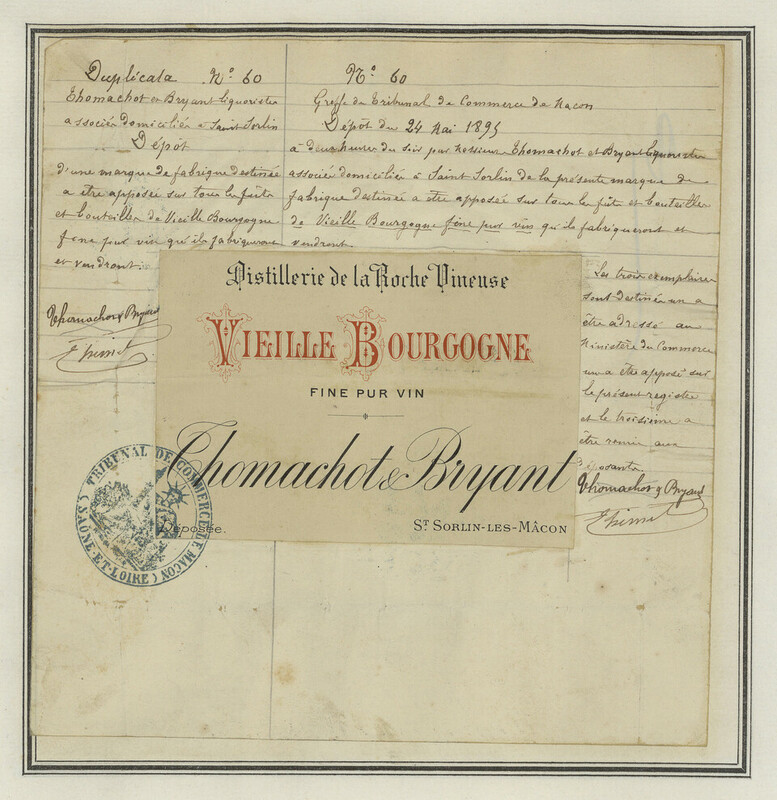 Duplicata N° 60
Thomachot et Bryant liquoristes
associés domiciliés à Saint Sorlin
Dépot
d'une marque de fabrique destinée
a être apposée sur tous les fûts
et bouteilles de Vieille Bourgogne
fine pur vin qu'ils fabriqueront
et vendront.
Thomachot & Bryant
N° 60
Greffe du Tribunal de Commerce de Macon
Dépôt du 24 Mai 1895
à deux heures du soir par Messieurs Thomachot et Bryant liquoristes
associés domiciliés à Saint Sorlin de la présente marque de
fabrique destinée a être apposée sur tous les fûts et bouteilles
de Vieille Bourgogne fine pur vin qu'ils fabriqueront et
vendront.
Les trois exemplaires
sont destinés un a
être adressé au
Ministère du Commerce
un a être apposé sur
le présent registre
et le troisième a
être remis aux
déposants
Thomachot & Bryant
Distillerie de la Roche Vineuse
VIEILLE BOURGOGNE
FINE PUR VIN
Thomachot & Bryant
Déposée.
ST SORLIN-LES-MÂCON
TRIBUNAL DE COMMERCE DE MACON
(SAÔNE-ET-LOIRE)